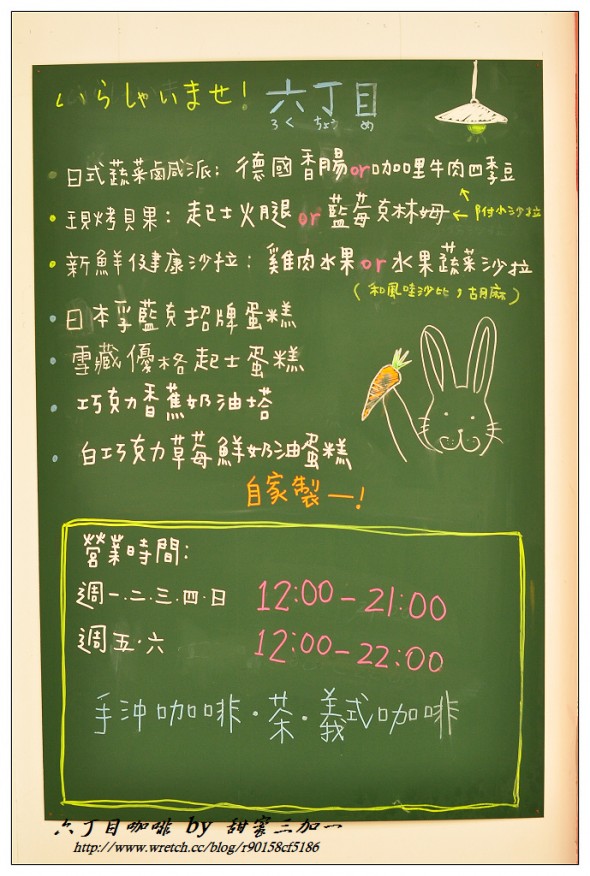 いらしゃいませ! 六丁目
ろくちょうめ
• 日式蔬菜鹹派: 德國香腸or咖哩牛肉四季豆
• 現烤貝果: 起士火腿 or 藍莓克林姆 ← 附小沙拉
• 新鮮健康沙拉: 雞肉水果or水果蔬菜沙拉
(和風哇沙比,胡麻)
• 日本乳藍克招牌蛋糕
• 雪藏優格起士蛋糕
• 巧克力香蕉奶油塔
• 白巧克力草莓鮮奶油蛋糕
自家製—!
營業時間:
週一.二.三.四.日 12:00-21:00
週五.六 12:00-22:00
手沖咖啡・茶・義式咖啡
六丁目咖啡 by 甜蜜三加一
http://www.wretch.cc/blog/r90158cf5186